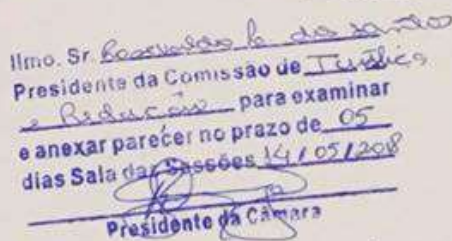 Ilmo. Sr. dos santos
Presidente da Comissão de Justiça
e Redação para examinar
e anexar parecer no prazo de 05
dias Sala das Sessões 14 / 05 / 2018
Presidente da Câmara